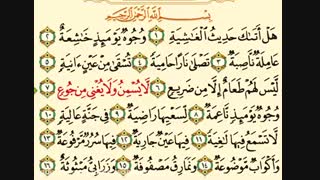 بِسْمِ اللَّهِ الرَّحْمَٰنِ الرَّحِيمِ
هَلْ أَتَىٰكَ حَدِيثُ الْغَٰشِيَةِ ١ وُجُوهٌ يَوْمَئِذٍ خَٰشِعَةٌ ٢
عَامِلَةٌ نَّاصِبَةٌ ٣ تَصْلَىٰ نَارًا حَامِيَةً ٤ تُسْقَىٰ مِنْ عَيْنٍ ءَانِيَةٍ ٥
لَّيْسَ لَهُمْ طَعَامٌ إِلَّا مِن ضَرِيعٍ ٦ لَّا يُسْمِنُ وَلَا يُغْنِي مِن جُوعٍ ٧
وُجُوهٌ يَوْمَئِذٍ نَّاعِمَةٌ ٨ لِّسَعْيِهَا رَاضِيَةٌ ٩ فِي جَنَّةٍ عَالِيَةٍ ١٠
لَّا تَسْمَعُ فِيهَا لَٰغِيَةً ١١ فِيهَا عَيْنٌ جَارِيَةٌ ١٢ فِيهَا سُرُرٌ مَّرْفُوعَةٌ ١٣
وَأَكْوَابٌ مَّوْضُوعَةٌ ١٤ وَنَمَارِقُ مَصْفُوفَةٌ ١٥ وَزَرَابِيُّ مَبْثُوثَةٌ ١٦